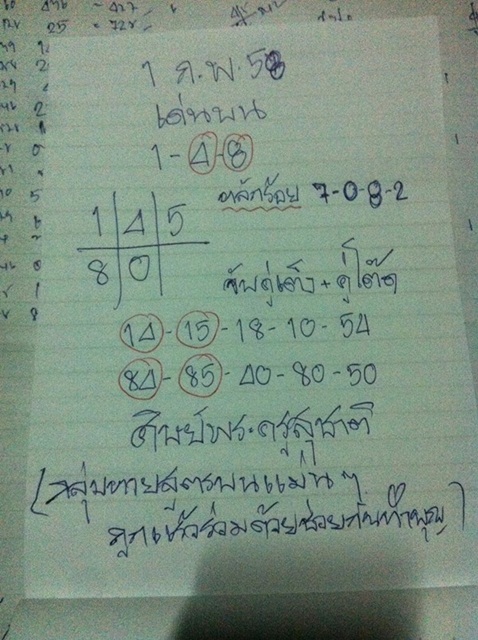 1 ก.พ. 58
เด่นบน
1-4-8
หลักร้อย 7-0-8-2
1 4 5
8 0
จับคู่เต็ง+คู่โต๊ด
14-15-18-10-54
84-85-40-80-50
ศิษย์พระครูสุชาติ
(กลุ่มทายสูตรบนแม่นๆ
ถูกแล้วร่วมด้วยช่วยกันทำบุญ)